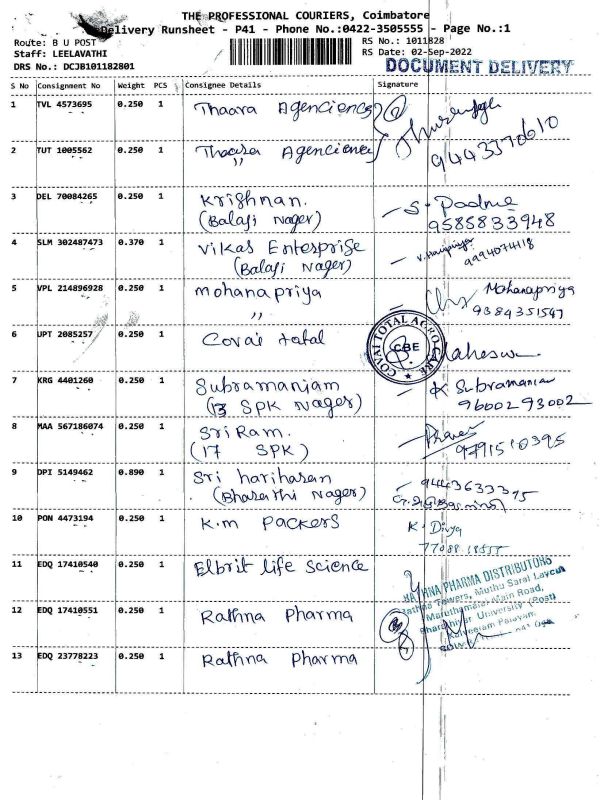 THE PROFESSIONAL COURIERS, Coimbatore
Delivery Runsheet - P41 - Phone No.:0422-3505555 - Page No.:1
Route: B U POST
RS No.: 1011828
Staff: LEELAVATHI
RS Date: 02-Sep-2022
DRS No.: DCJB101182801
DOCUMENT DELIVERY
S No Consignment No Weight PCS Consignee Details Signature
1 TVL 4573695 0.250 1 Thaara Agencienes
9443370610
2 TUT 1005562 0.250 1 Thaara Agencienes
"
3 DEL 70084265 0.250 1 Krishnan. S. Padma
(Balaji Nager) 9585833948
4 SLM 302487473 0.370 1 Vikas Enterprise
(Balaji Nager) 9994074118
5 VPL 214896928 0.250 1 mohanapriya Mohanapriya
" 9384351547
6 UPT 2085257 0.250 1 Covai total
COVAI TOTAL AGRO CARE
CBE
7 KRG 4401260 0.250 1 Subramaniam K Subramanian
(13 SPK Nager) 9600293002
8 MAA 567186074 0.250 1 Sri Ram.
(17 SPK) 9791510395
9 DPI 5149462 0.890 1 Sri hariharan 9443633395
(Bharathi Nager)
10 PON 4473194 0.250 1 K.m Packers K. Divya
77088 18555
11 EDQ 17410540 0.250 1 Elbrit life science
RATHNA PHARMA DISTRIBUTORS
Rathna Towers, Muthu Sarai Layout
Maruthamalai Main Road,
Bharathiyar University (Post)
12 EDQ 17410551 0.250 1 Rathna Pharma
13 EDQ 23778223 0.250 1 Rathna Pharma